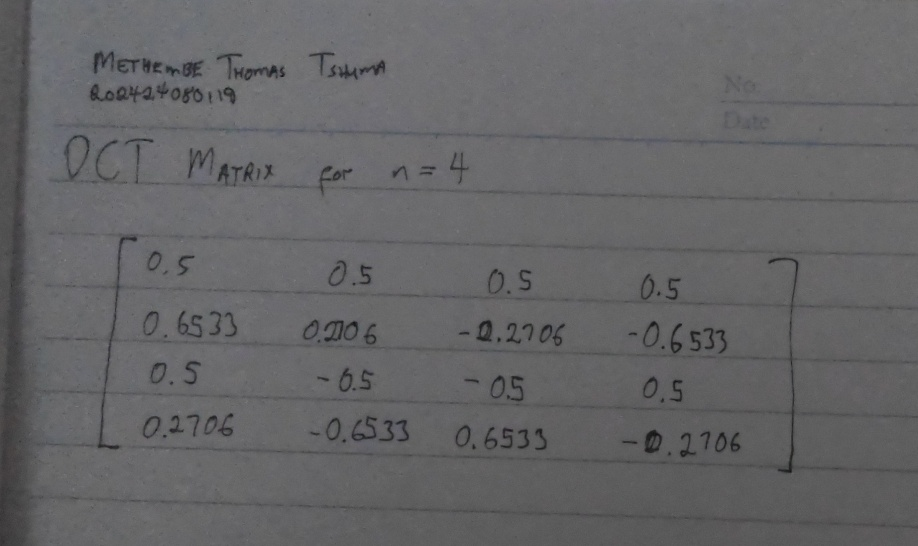 METHEMBE THOMAS TSHUMA
202424080119
No.
Date
DCT MATRIX for n = 4
0.5 0.5 0.5 0.5
0.6533 0.2706 -0.2706 -0.6533
0.5 -0.5 -0.5 0.5
0.2706 -0.6533 0.6533 -0.2706